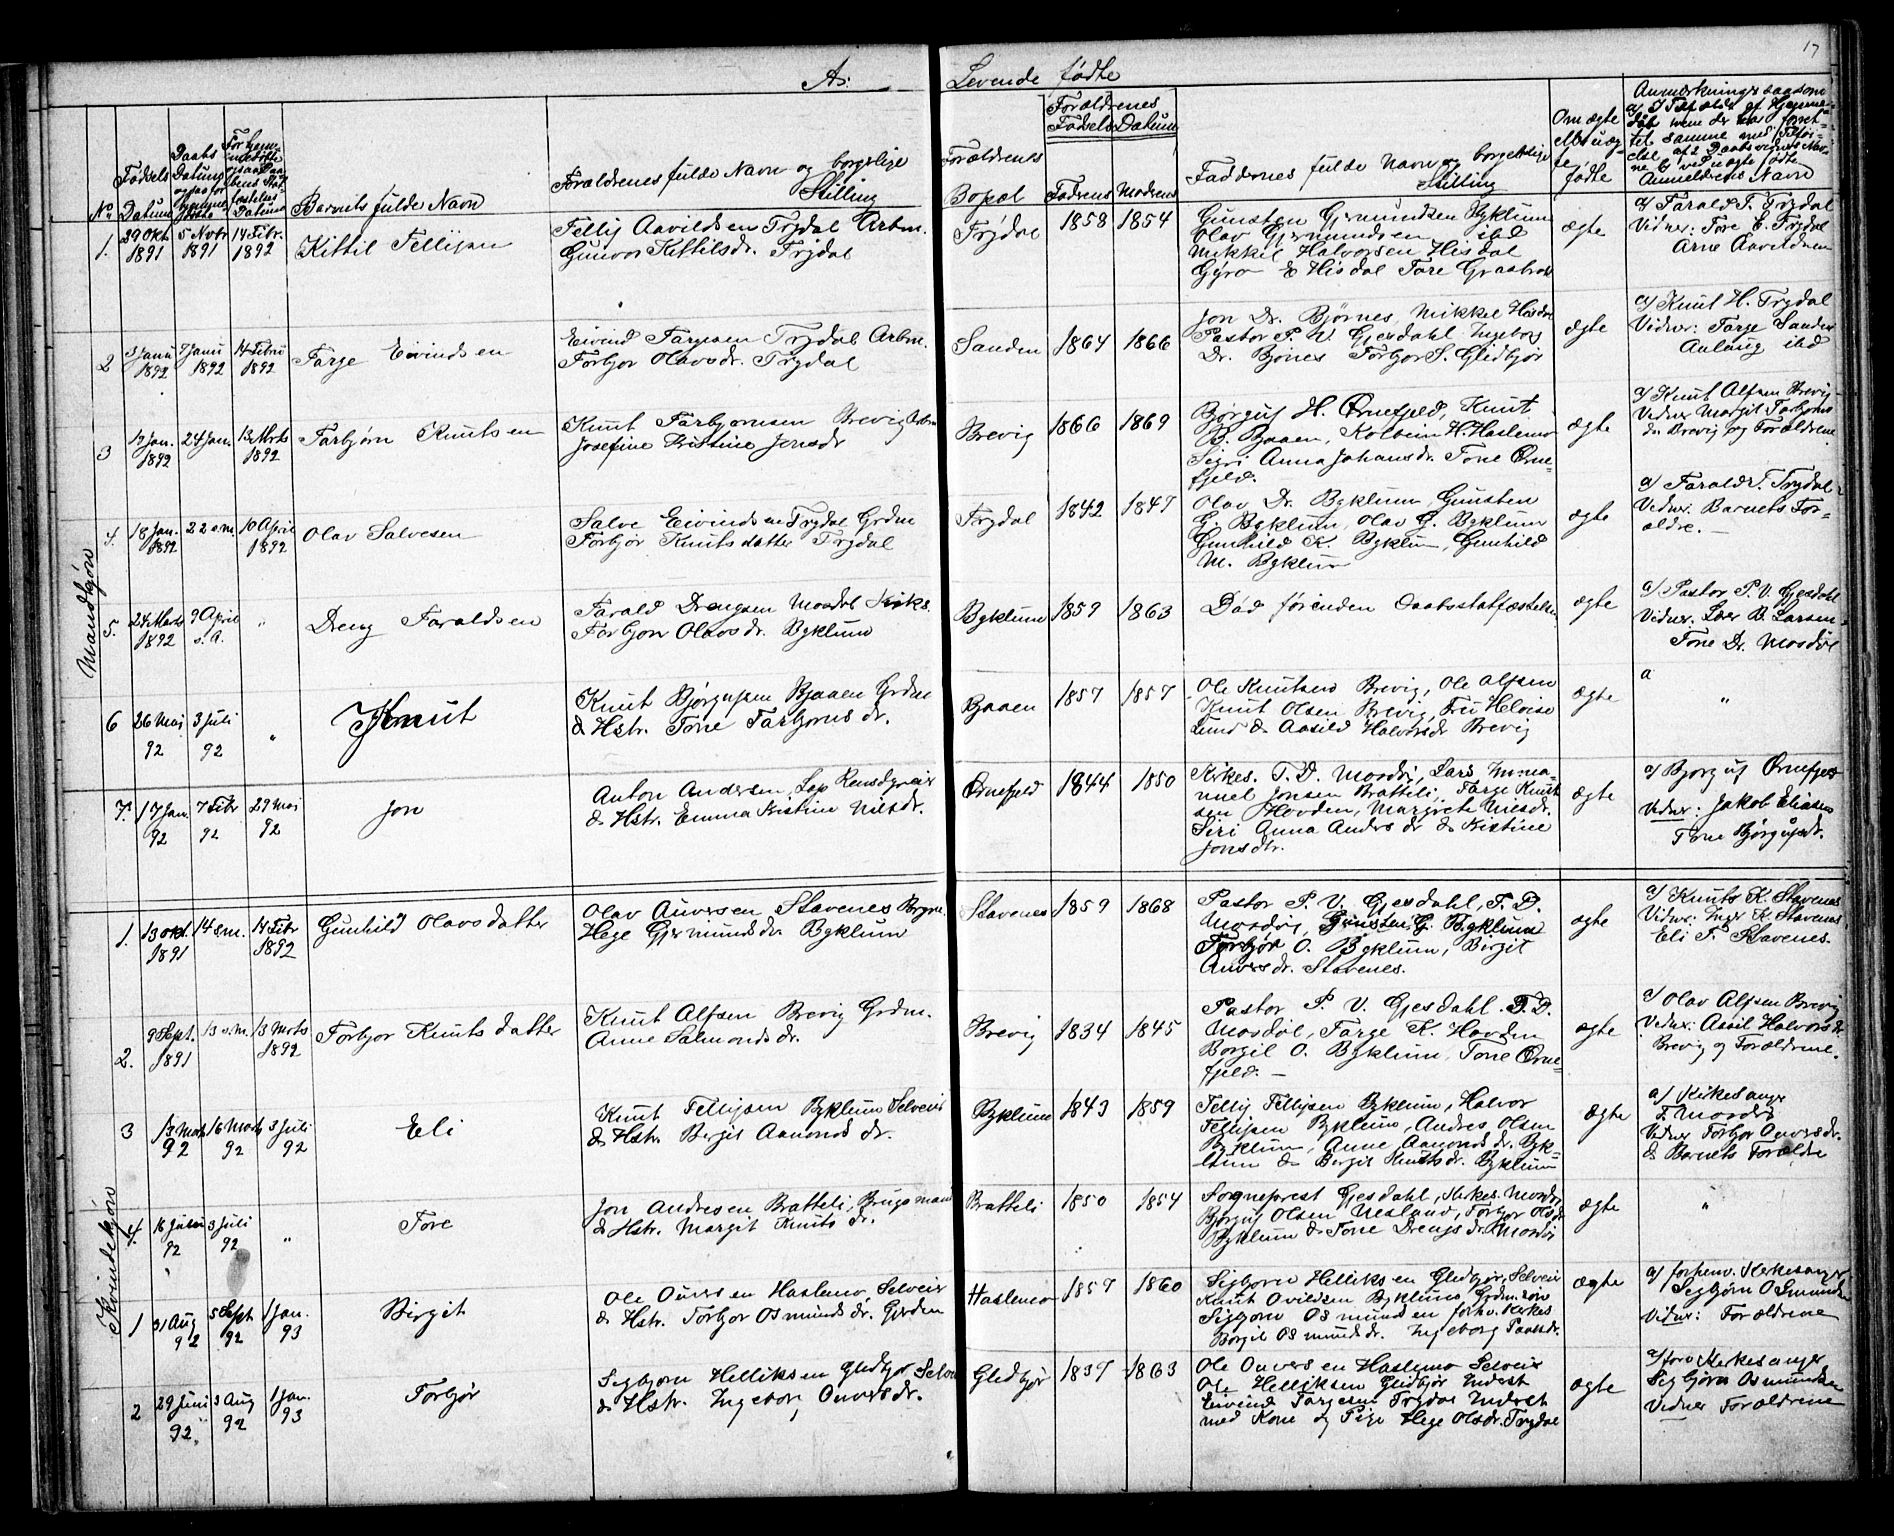 17
A: Levende fødte
No
Fødsels Datum
Daabs Datum
Barnets fulde Navn
Forældrenes fulde Navn og borgerlige Stilling
Forældrenes Bopæl
Forældrenes Fødsels Datum
Fadrens Modrens
Faddernes fulde Navn og borgerlige Stilling
Om ægte eller uægte fødte
Mandkjøn
1. 29 Okt 1891 5 Novbr 1891 14 Febr. 1892 Kittil Tellijsen
Tellij Aavildsen Trydal Arbm.
Gunvor Kittilsdr. Trydal
Trydal 1858 1854
Gunsten Gjermundsen Byklum
Olav Gjermundsen ibd
Mikkil Halvorsen Hisdal
Gyro E Hisdal Tore
ægte
a/ Tarald T. Trydal
Vidner: Tore E. Trydal
Arne Aavildsen
2 3 Janu 1892 7 Janu 1892 14 Febru 1892 Targe Eivindsen
Eivind Targesen Trydal Arbm.
Torbjor Olavsdr. Trydal
Sanden 1864 1866
Jon Dr. Bjørnes, Mikkel Hisdal
Pastor P. V. Gjesdahl Ingeborg
Dr. Bjønes Torbjor S. Glidbjør
ægte
a/ Knut H. Trydal
Vidner: Targe Sanden
Aslaug ibd
3 17 Jan. 1892 24 Jan. 13 Marts 1892 Tarbjørn Knutsen
Knut Tarbjornsen Brevig
Josefine Kristine Jensdr
Brevig 1866 1869
Bjørguf H. Ørnefjeld, Knut
B. Bjaaen, Kolbein H. Haslemo
Sigri Anna Johansdr. Tone Ørne-
fjeld.
ægte
a/ Knut Alfsen Brevig
Vidner Margit Tarbjorns
dr. Brevig og Forældrene
4. 18 Jan. 1892 22 s.m. 10 April 1892 Olav Salvesen
Salve Eivindsen Trydal Grdm
Torbjør Knutsdatter Trydal
Trydal 1842 1847
Olav Dr. Byklum, Gunsten
G. Byklum, Olav G. Byklum
Gunhild K. Byklum, Gunhild
M. Byklum
ægte
a/ Tarald T. Trydal
Vidner: Barnets For-
ældre. —
5. 24 Marts 1892 9 April s. A. " Dreng Taraldsen
Tarald Drengsen Mosdøl Kirks.
Torbjor Olavsdr. Byklum
Byklum 1859 1863
Død førenden Daabsstadfæstelsen
ægte
a/ Pastor P. V. Gjesdahl
Vidner: Lær B. Larsen
Tone Dr. Mosdøl
6 26 Mai 92 3 Juli 92 " Knut
Knut Bjørgufsen Bjaaen Grdm
& Hstr. Tone Tarbjorns dr.
Bjaaen 1857 1857
Ole Knutsen Brevig, Ole Alfsen
Knut Olsen Brevig, Fru Heloise
Lund & Aasild Halvorsdr Brevig
ægte
a "
7. 17 Jan. 92 7 Febr 92 29 Mai 92 Jon
Anton Andersen, Lap Rensdyreier
& Hstr. Emma Kristine Nilsdr.
Ørnefjeld 1844 1850
Kirkes. T. D. Mosdøl, Lars Imma-
nuel Jonsen Bratteli, Targe Knut
sen Hovden, Margrete Nilsdr.
Siri Anna Anders dr & Kristine
Jonsdtr.
ægte
a/ Bjorguf Ørnefjeld
Vidner: Jakob Eliasen
Tone Bjørgufsdr.
Kvindekjøn
1. 13 Okt. 1891 14 s.m. 14 Febr 1892 Gunhild Olavsdatter
Olav Auversen Stavenes
Hege Gjermundsdr Byklum
Stavenes 1859 1868
Pastor P. V. Gjesdahl, T. D.
Mosdøl, Gunsten G. Byklum
Torbjør O. Byklum, Birgit
Auversdr. Stavenes.
ægte
a/ Knut K. Stavenes
Vidner: Inger K. Stavenes
Eli T. Stavenes.
2. 9 Sept. 1891 13 s.m. 13 Marts 1892 Torbjor Knutsdatter
Knut Alfsen Brevig Grdm.
Anne Salmonds dr.
Brevig 1834 1845
Pastor P. V. Gjesdahl. T. D.
Mosdøl, Targe K. Hovden
Borgil O. Byklum, Tone Ørne-
fjeld. —
ægte
a/ Olav Alfsen Brevig
Vidner: Assil Halvors dr
Brevig og Forældrene.
3 13 Mar 92 16 Marts 92 3 Juli 92 Eli
Knut Tellijsen Byklum Selveier
& Hstr. Birgit Aamonds dr.
Byklum 1843 1859
Tellij Tellijsen Byklum, Halvor
Tellijsen Byklum, Andres Olsen
Byklum, Anne Aamonds dr. Byk-
lum & Birgit Knutsdr. Byklum
ægte
a/ Kirkesanger
T. Mosdøl
Vidner Torbjor Auversdr.
& Barnets Forældre
4. 16 Juni 92 3 Juli 92 " Tore
Jon Andresen Bratteli, Brugsmand
& Hstr. Margit Knuts dr.
Bratteli 1850 1854
Sogneprest Gjesdahl, Kirkes. Mosdøl
Bjørguf Olsen Nesland, Torbjor Olsdr
Byklum & Tone Drengs dr. Mosdøl
ægte
"
1 31 Aug 92 5 Sept 92 1 Jan. 93 Birgit
Ole Auversen Haslemo, Selveier
& Hstr. Torbjor Osmunds dr. Grden
Haslemo 1857 1860
Sigbjorn Helliksen Glidbjør, Selveier
Knut Ovildsen Byklum, Grdm. søn
Sigbjorn Osmundsen forhv. Kirkes
Borgil Osmundsdr. Ingeborg
ægte
a/ forhenv. Kirkesanger
Sigbjørn Osmundsen
Vidner: Forældrene
2 29 Juni 92. 3 Aug 92 1 Jan. 93 Torbjør
Sigbjorn Helliksen Glidbjør Selv
& Hstr. Ingeborg Auversdr.
Glidbjør 1837 1863
Ole Auversen Haslemo Selveier
Ole Helliksen Glidbjør Inderst
Eivind Targesen Trydal Inderst
med Kone og Pige Hege Olsdr. Trydal
ægte
a/ forv Kirkesanger
Sigbjørn Osmundsen
Vidner Forældrene